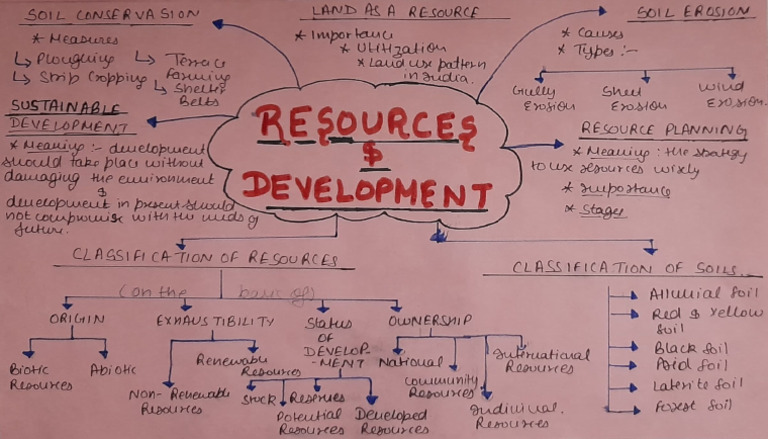 SOIL CONSERVASION
* Measures
↳ Ploughing
↳ Strip Cropping
↳ Terrace
Farming
↳ Shelter
Belts
LAND AS A RESOURCE
* Importance
* Utilization
* Land use pattern
in India.
SOIL EROSION
* Causes
* Types :-
Gully
Erosion
Sheet
Erosion
Wind
Erosion.
SUSTAINABLE
DEVELOPMENT
* Meaning :- development
should take place without
damaging the environment
&
development in present should
not compromise with the needs of
future.
RESOURCES
&
DEVELOPMENT
RESOURCE PLANNING
* Meaning : the strategy
to use resources wisely
* Importance
* Stages
CLASSIFICATION OF RESOURCES
(on the basis of)
ORIGIN
Biotic
Resources
Abiotic
EXHAUSTIBILITY
Renewable
Resources
Non-Renewable
Resources
Status
OF
DEVELOP-
-MENT
Stock
Reserves
Potential
Resources
Developed
Resources
OWNERSHIP
National
Community
Resources
International
Resources
Individual
Resources
CLASSIFICATION OF SOILS
Alluvial Soil
Red & Yellow
Soil
Black Soil
Arid Soil
Laterite Soil
Forest Soil